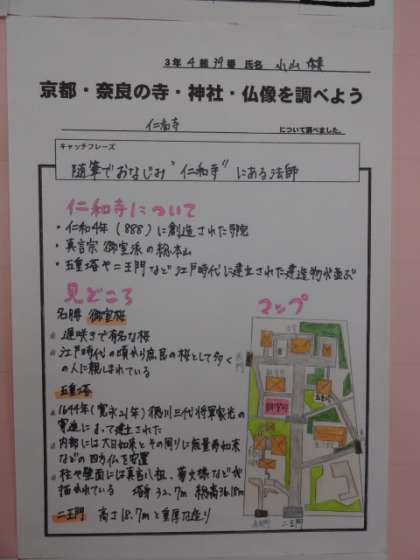 3年 4組 番 氏名 小山
京都・奈良の寺・神社・仏像を調べよう
仁和寺 について調べました。
キャッチフレーズ
随筆でおなじみ"仁和寺"にある法師
仁和寺について
・仁和4年(888)に創造された寺院
・真言宗 御室派の総本山
・五重塔や二王門など江戸時代に建立された建造物が並ぶ
見どころ
マップ
名勝 御室桜
遅咲きで有名な桜
江戸時代の頃から庶民の桜として多く
の人に親しまれている
五重塔
1644年(寛永21年)徳川三代将軍家光の
寄進によって建立された
内部には大日如来とその周りに無量寿如来
などの四方仏を安置
柱や壁面には真言八祖、菊文様などが
描かれている 塔身 32.7m 総高36.18m
二王門 高さ18.7mと重厚な造り
二王門